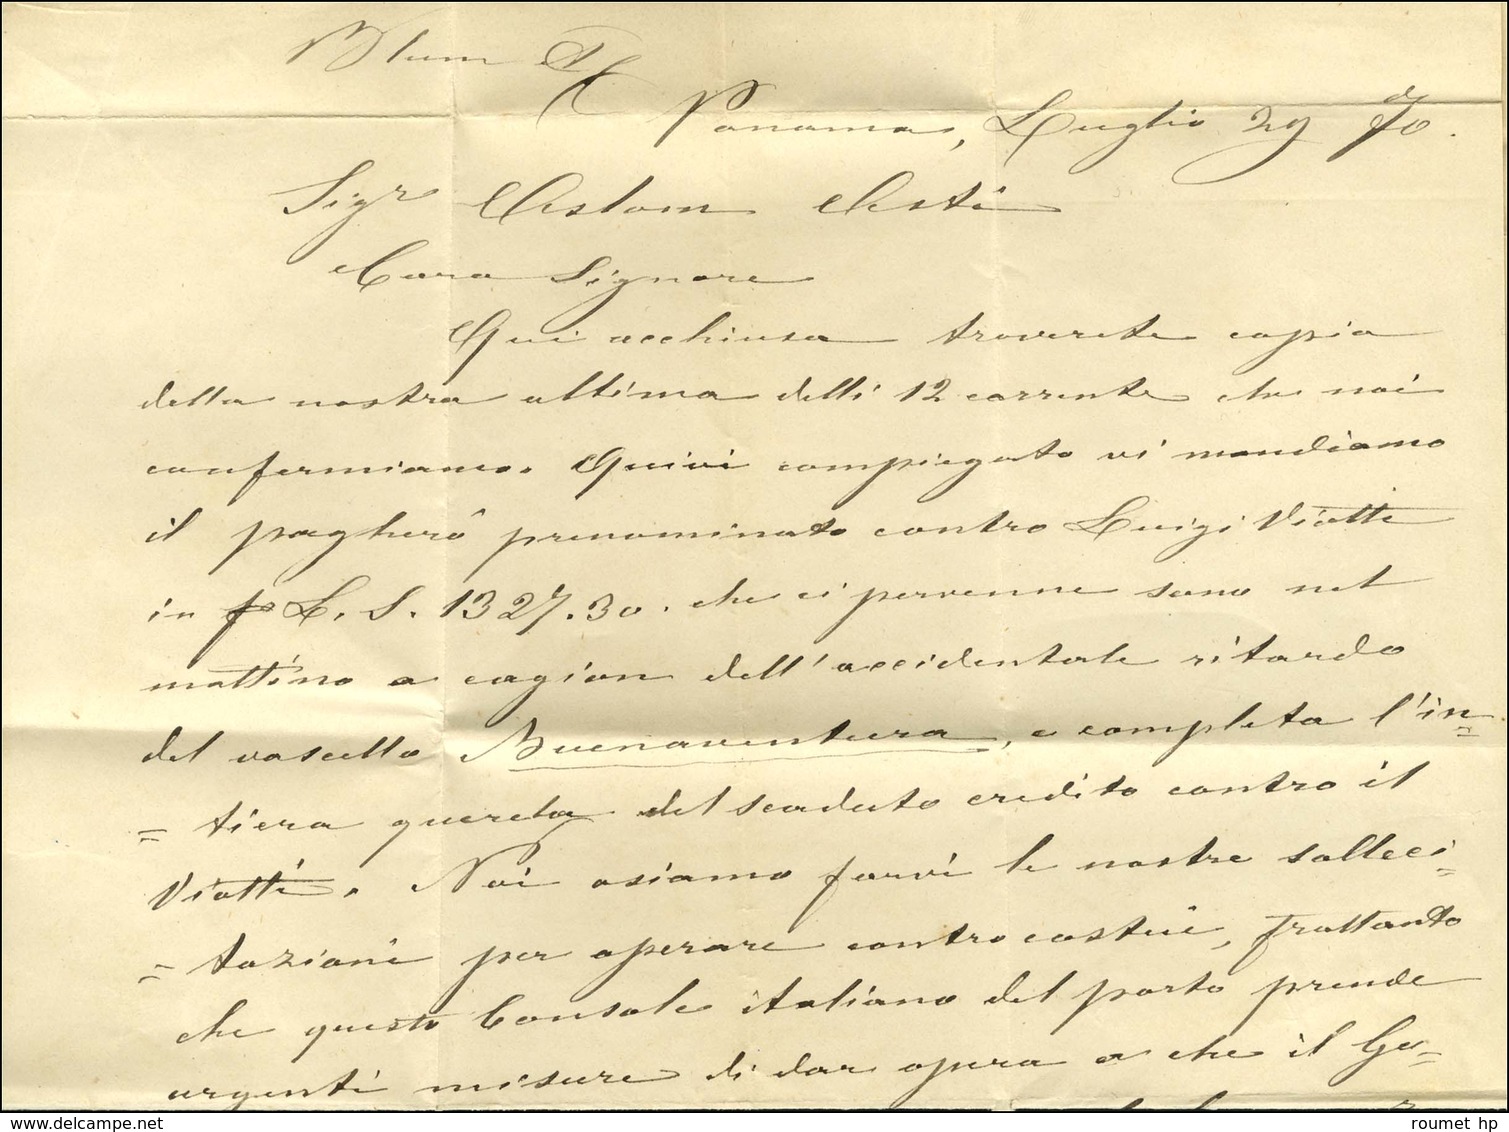 Panama, Luglio 29 70.
Sigr Aslom Asti
Caro Signore
Qui acchiusa troverete copia
della nostra ultima delli 12 corrente che noi
confermiamo. Quivi compiegato vi mandiamo
il pagherò prenominato contro Luigi Viotti
in L. S. 1327.30. che ci pervenne sano nel
mattino a cagion dell'accidentale ritardo
del vascello Buenaventura, e completa l'in=
=tiera querela del scaduto credito contro il
Viotti. Noi osiamo farvi le nostre solleci=
=tazioni per operare contro costui, frattanto
che questo Console italiano del porto prende
urgenti misure di dar opera a che il Go=
roumet hp